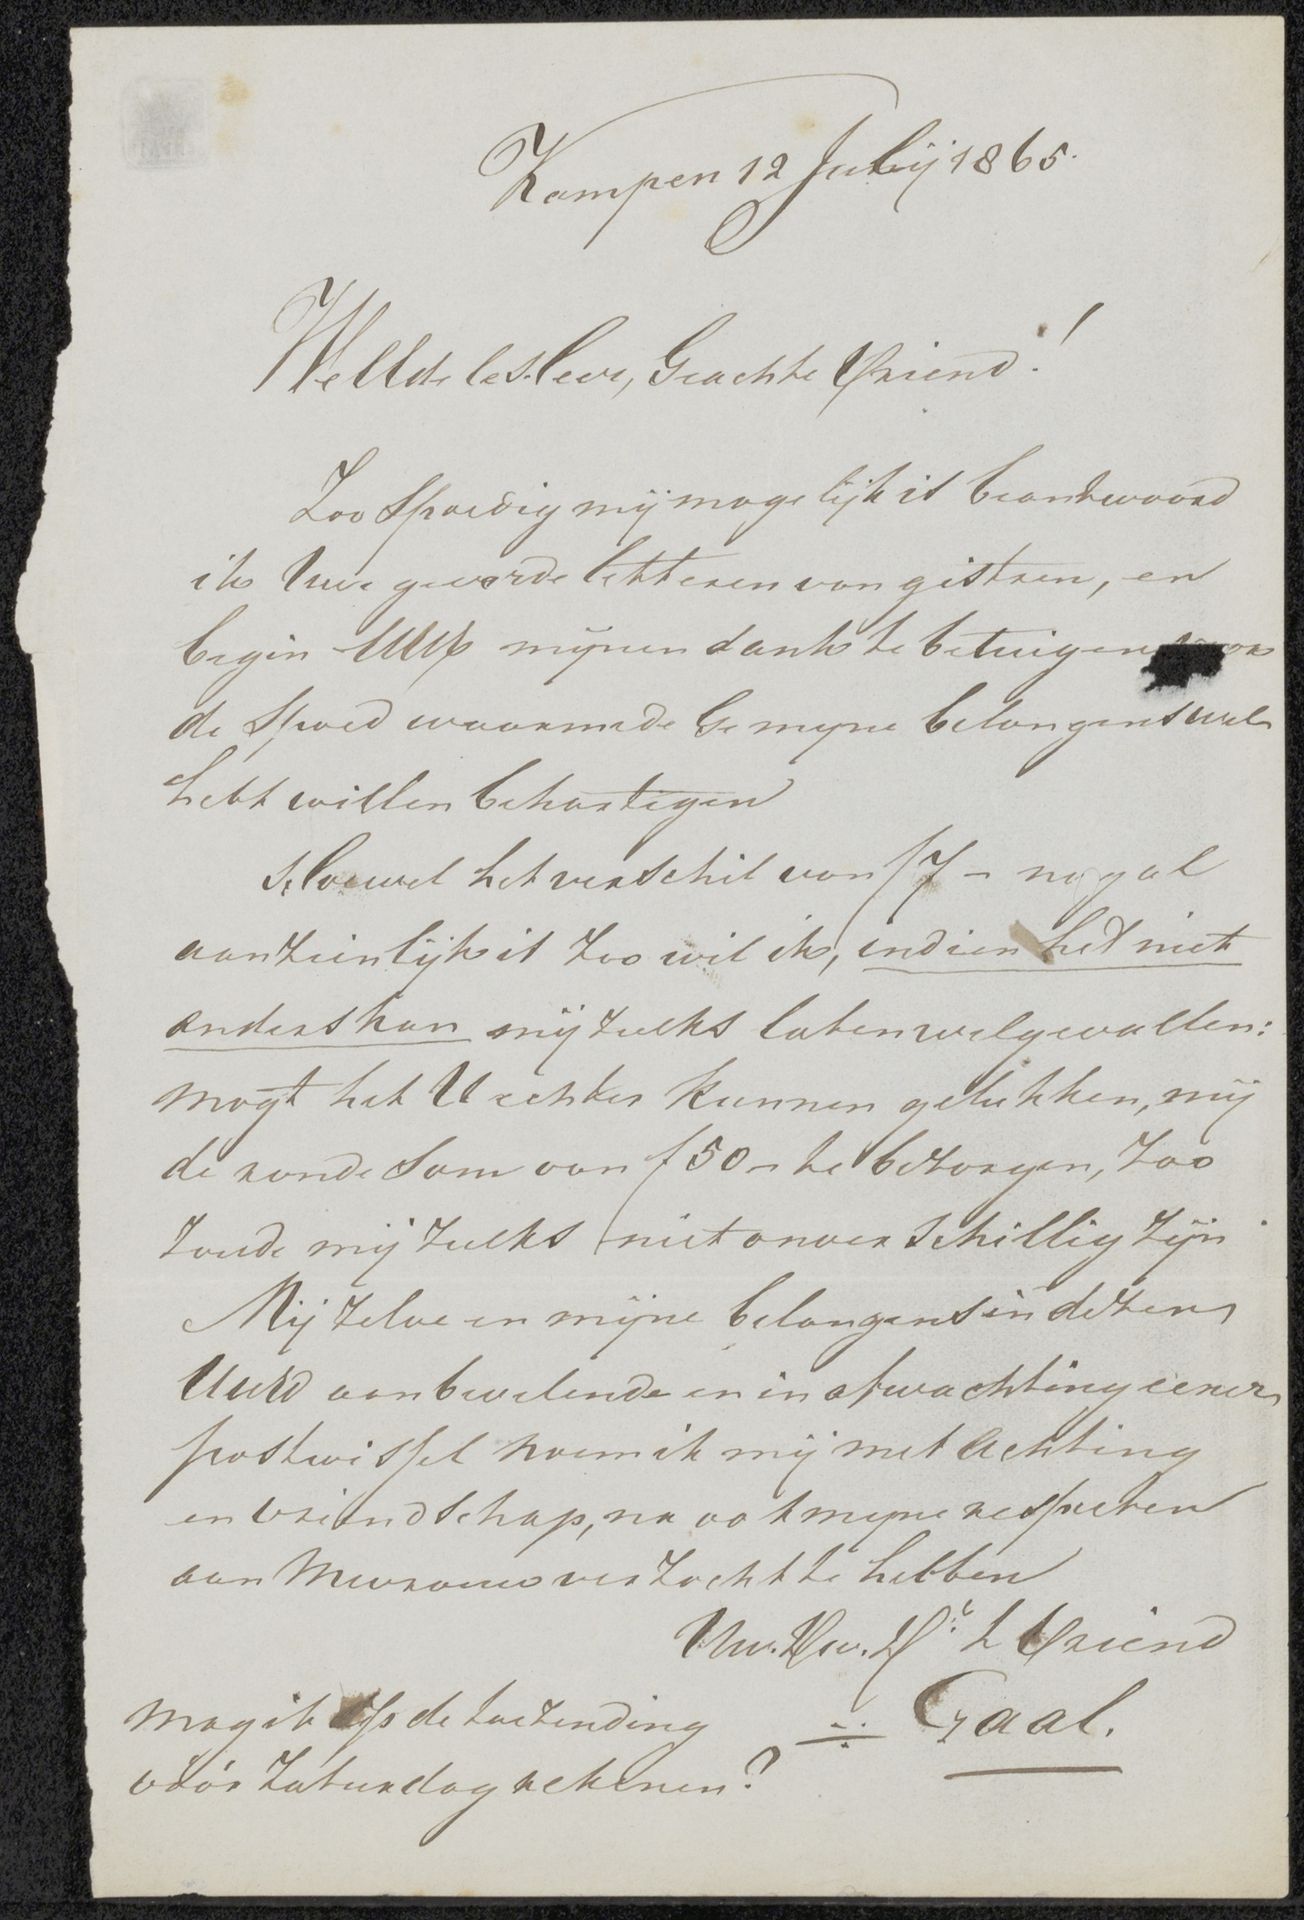 Kampen 12 Julij 1865.
WelEdele Heer, Geachte Vriend!
Zoo spoedig mij mogelijk is beantwoord
ik Uwe geeerde letteren van gistren, en
begin UEd mijnen dank te betuigen voor
de spoed waarmede Ge mijne belangens wel
hebt willen behartigen
Hoewel het verschil van f 7 - nog al
aanzienlijk is zoo wil ik, indien het niet
anders kan mij zulks laten welgevallen:
mogt het U echter kunnen gelukken, mij
de ronde som van f 50 - te bezorgen, zoo
zoude mij zulks niet onverschillig zijn
Mij zelve en mijne belangens in dezen
UEd aanbevelende en in afwachting eener
postwissel noem ik mij met achting
en vriendschap, na ook mijne respecten
aan Mevrouw verzocht te hebben
Uw. Dw. Dr. & Vriend
Gaal.
Mag ik op de toezending
vóór Zaturdag rekenen?